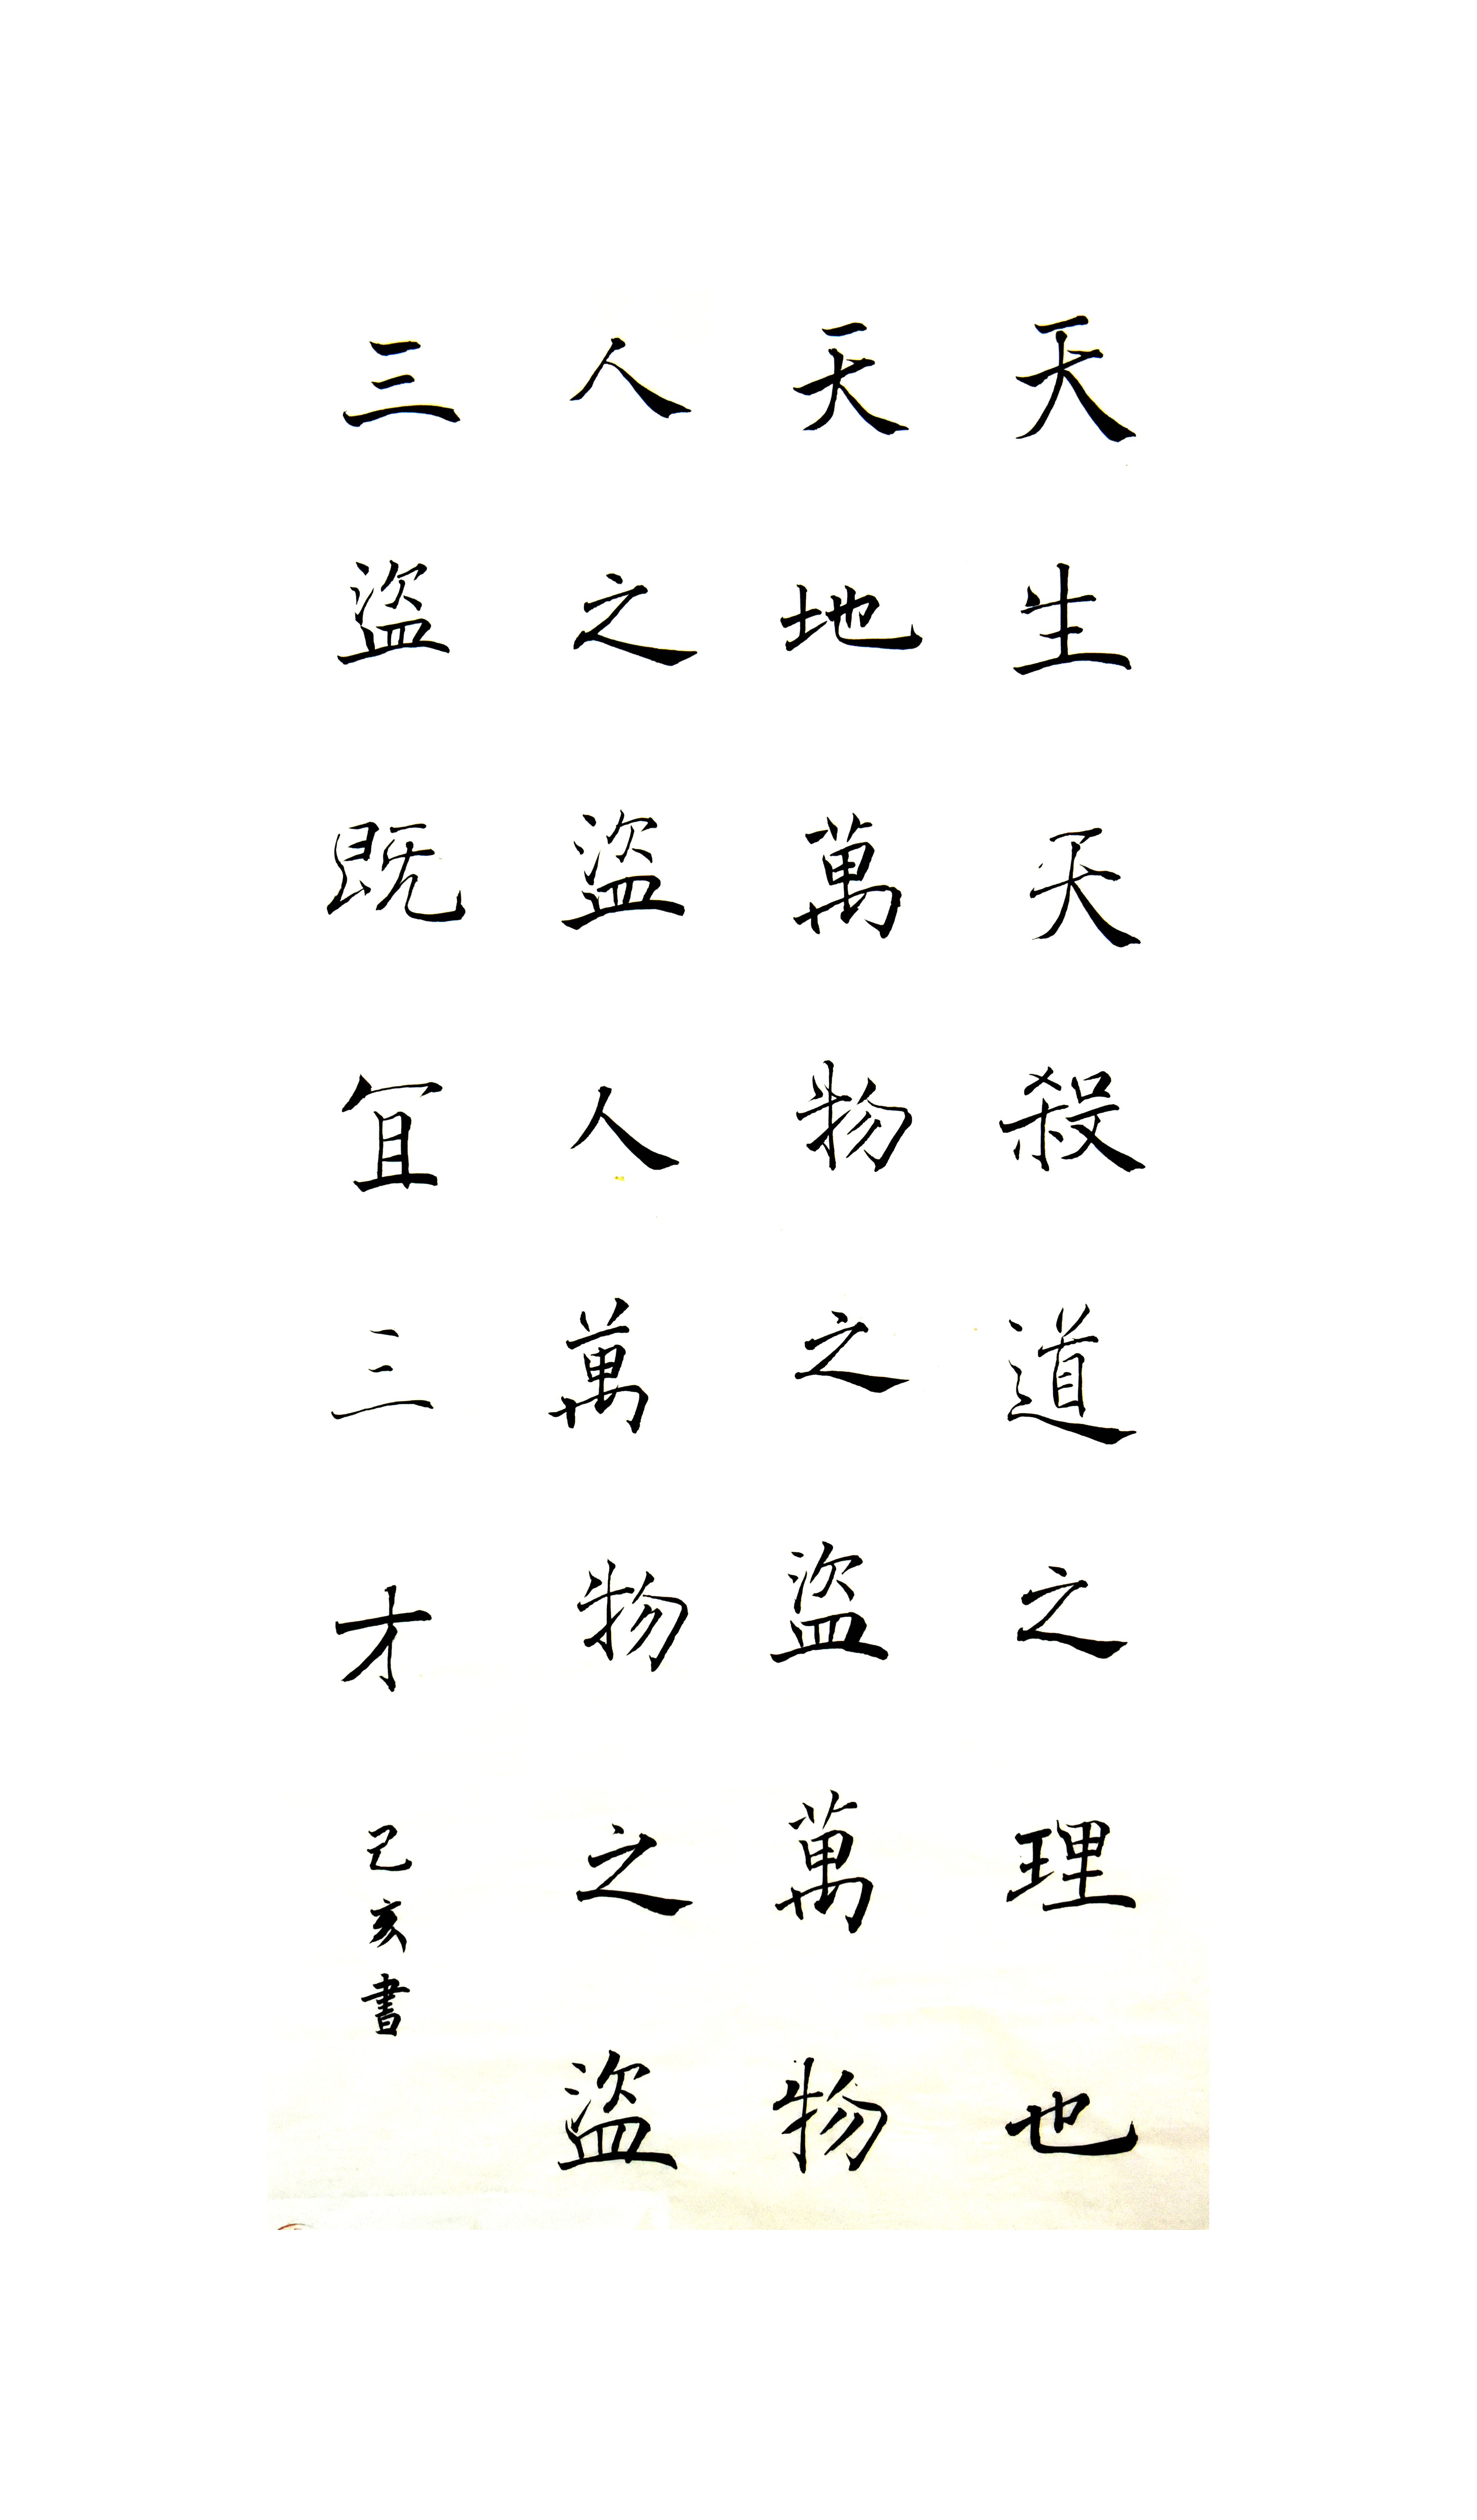 天生天殺道之理也
天地萬物之盜萬物
人之盜人萬物之盜
三盜既宜三才
己亥書